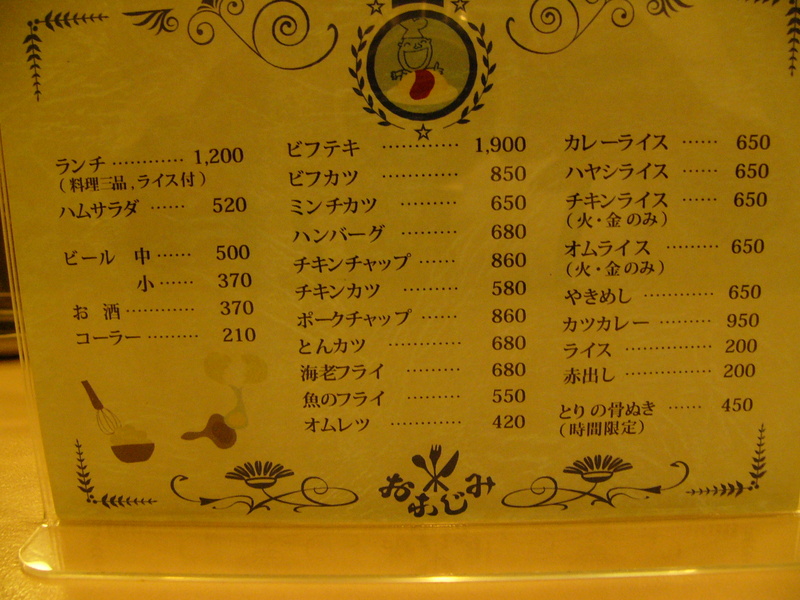 ランチ ………… 1,200
(料理三品,ライス付)
ハムサラダ …… 520
ビール 中 …… 500
小 …… 370
お酒 ………… 370
コーラー ……… 210
ビフテキ ………… 1,900
ビフカツ ……… 850
ミンチカツ ……… 650
ハンバーグ ……… 680
チキンチャップ …… 860
チキンカツ ……… 580
ポークチャップ …… 860
とんカツ ……… 680
海老フライ ……… 680
魚のフライ ……… 550
オムレツ ………… 420
カレーライス …… 650
ハヤシライス …… 650
チキンライス …… 650
(火・金のみ)
オムライス ……… 650
(火・金のみ)
やきめし ………… 650
カツカレー ……… 950
ライス ………… 200
赤出し ………… 200
とりの骨ぬき …… 450
(時間限定)
おむじみ